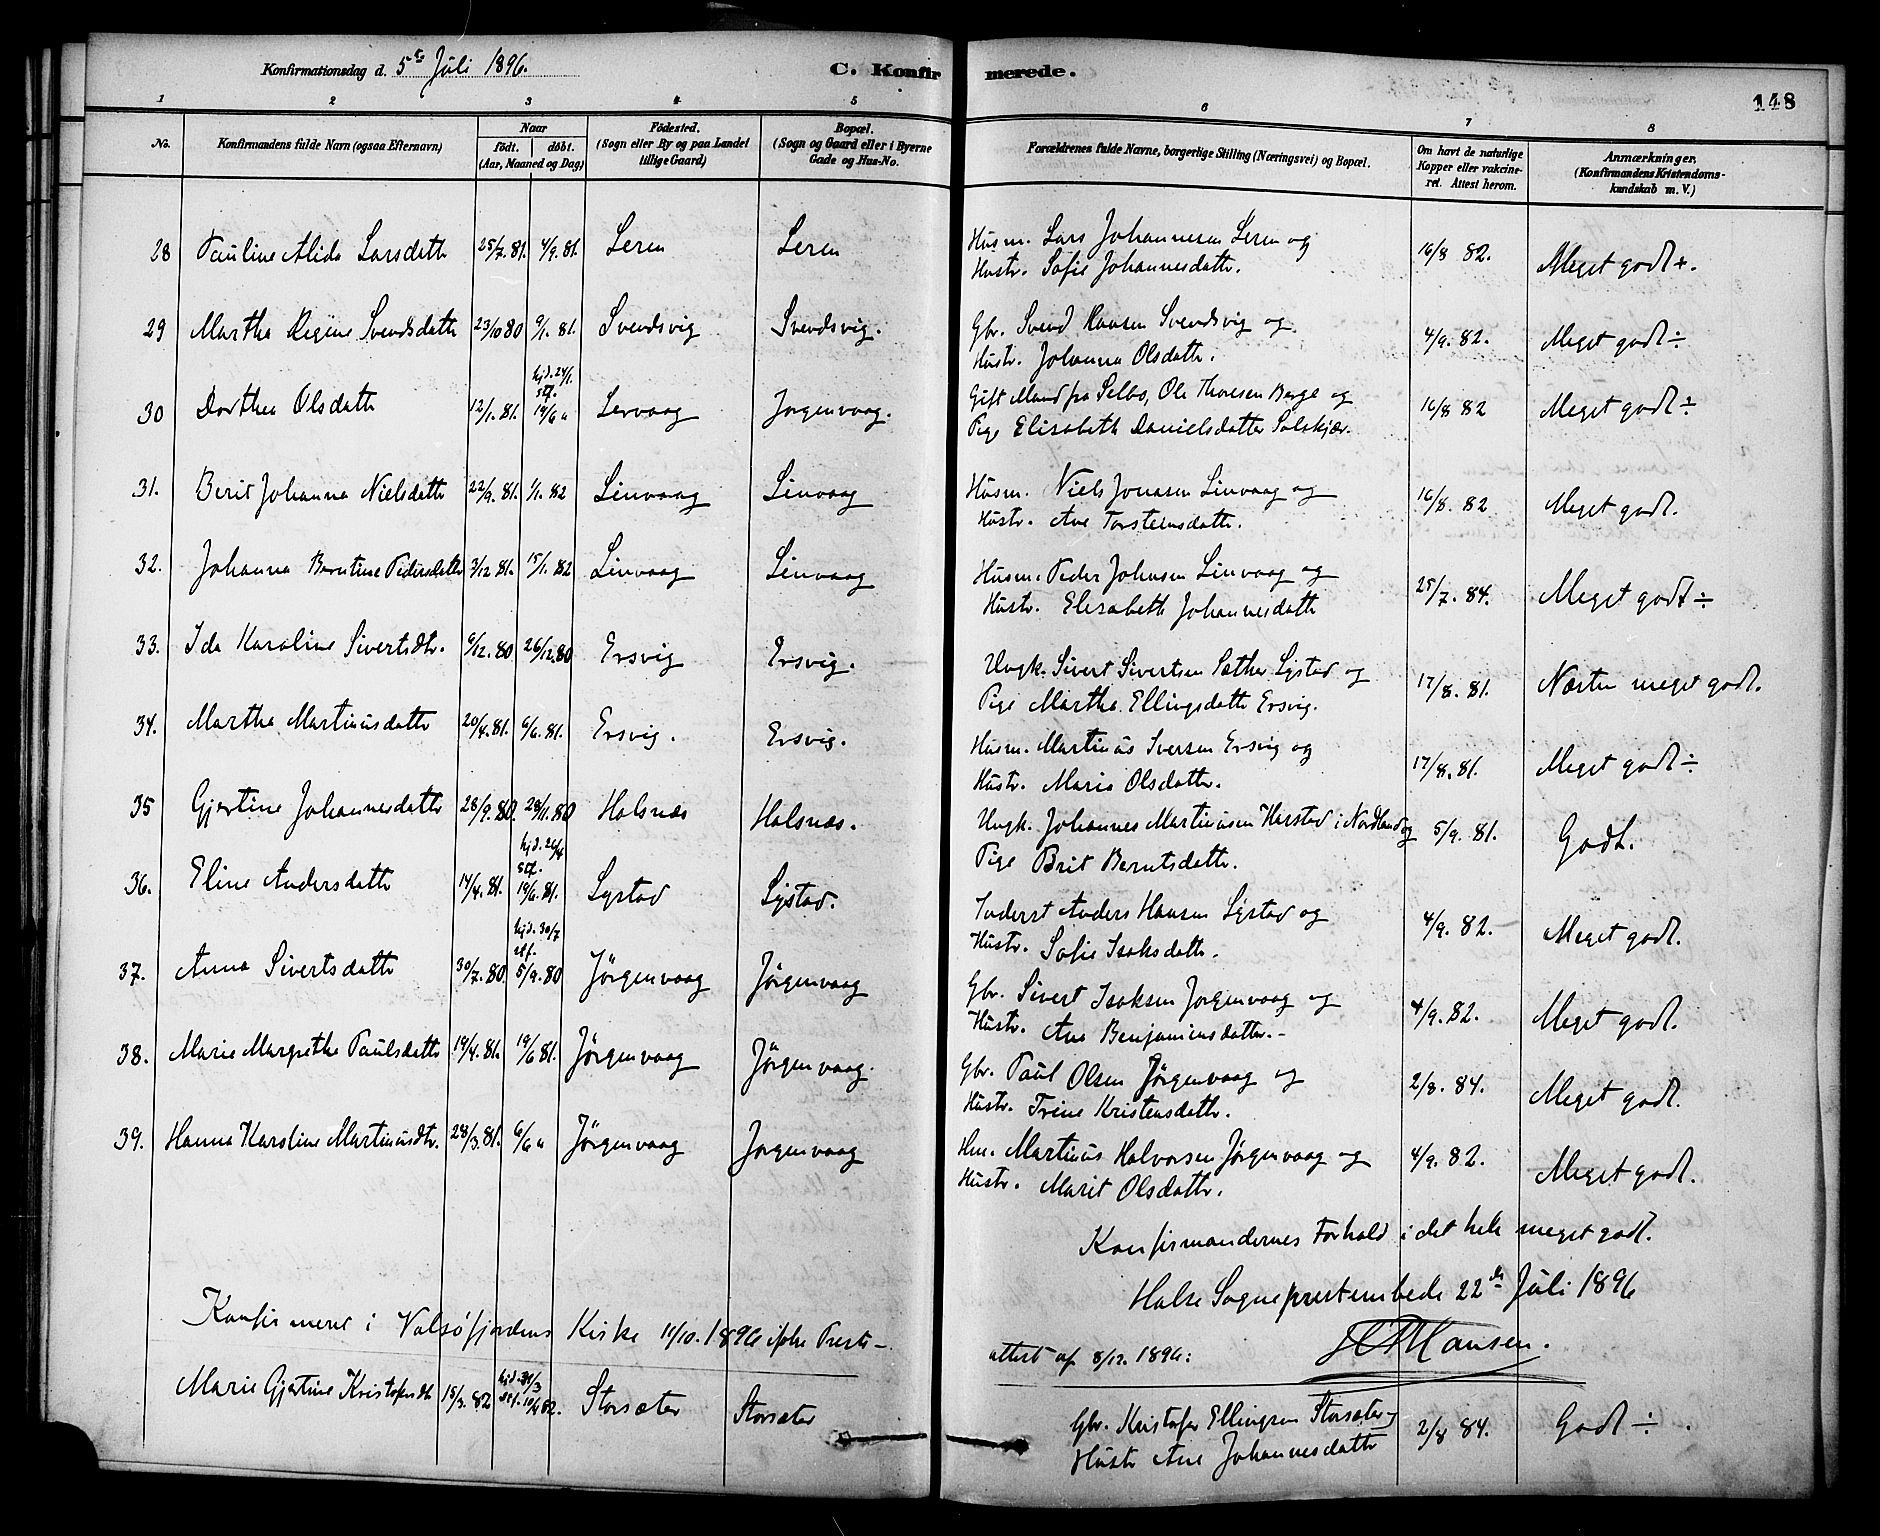 Konfirmationsdag d. 5te Juli 1896. C. Konfirmerede. 148
1 2 3 4 5 6 7 8
No.
Konfirmandens fulde Navn (ogsaa Efternavn)
Naar
födt. döbt.
(Aar, Maaned og Dag)
Födested.
(Sogn eller By og paa Landet
tillige Gaard)
Bopæl.
(Sogn og Gaard eller i Byerne
Gade og Hus-No.
Forældrenes fulde Navne, borgerlige Stilling (Næringsvei) og Bopæl.
Om havt de naturlige
Kopper eller vakcine-
ret. Attest herom.
Anmærkninger.
(Konfirmandens Kristendoms-
kundskab m. V.)
28 Pauline Alida Larsdattr 25/7. 81. 4/9. 81. Leren Leren Husm. Lars Johannesen Leren og 16/8 82. Meget godt +.
Hustr. Sofie Johannesdattr.
29 Martha Regine Svendsdattr 23/10 80 9/1. 81. Svendsvig Svendsvig. Gbr. Svend Hansen Svendsvig og 4/9. 82. Meget godt ÷
Hustr. Johanna Olsdattr.
hjd. 24/1.
stf.
30 Dorthea Olsdattr 12/1. 81. 19/6 " Lervaag Jørgenvaag. Gift Mand fra Selbo, Ole Thoresen Berge og 16/8 82 Meget godt ÷
Pige Elisabeth Danielsdatter Solskjær.
31. Berit Johanna Nielsdattr 22/9. 81. 1/1. 82 Linvaag Linvaag Husm. Niels Jonasen Linvaag og 16/8. 82 Meget godt.
Hustr. Ane Torsteinsdattr.
32. Johanna Berntine Pedersdattr 3/12 81. 15/1. 82 Linvaag Linvaag Husm. Peder Johnsen Linvaag og 25/7. 84. Meget godt ÷
Hustr. Elisabeth Johannesdattr
33. Ida Karoline Sivertsdtr. 9/12. 80 26/12. 80 Ersvig Ersvig. Ungk. Sivert Sivertsen Sæther Lystad og 17/8. 81. Næsten meget godt.
Pige Martha Ellingsdattr Ersvig.
34. Martha Martinusdattr 20/4. 81. 6/6. 81. Ersvig. Ersvig. Husm. Martinus Iversen Ersvig og 17/8. 81. Meget godt ÷
Hustr. Marie Olsdattr.
35 Gjertine Johannesdattr 28/9. 80. 28/11. 80 Halsnæs Halsnæs. Ungk. Johannes Martinusen Harstad i Nordland og 5/9. 81. Godt.
Pige Brit Berntsdattr.
hjd. 26/4
stf.
36. Eline Andersdattr 14/4. 81. 19/6. 81. Lystad Lystad. Inderst Anders Hansen Lystad og 4/9. 82. Meget godt.
Hustr. Sofie Isaksdattr.
hjd. 30/7
stf.
37. Anna Sivertsdattr 30/7. 80. 5/9. 80 Jørgenvaag Jørgenvaag Gbr. Sivert Isaksen Jørgenvaag og 4/9. 82. Meget godt.
Hustr. Ane Benjaminsdatter.-
38. Marie Margrethe Paulsdattr 19/4. 81. 19/6 81. Jørgenvaag Jørgenvaag. Gbr. Paul Olsen Jørgenvaag og 2/8. 84. Meget godt.
Hustr. Trine Kristensdattr.
39. Hanna Karoline Martinusdtr. 28/3. 81. 6/6 " Jørgenvaag Jørgenvaag Hm. Martinus Halvorsen Jørgenvaag og 4/9. 82. Meget godt.
Hustr. Marit Olsdattr.
Konfirmandernes Forhold i det hele meget godt.
Halse Sogneprestembede 22de Juli 1896
Hansen.
Konfirmeret i Valsøfjordens Kirke 11/10. 1896 ifølge Prest-
attest af 8/12. 1896:
hjd. 31/3
Marie Gjertine Kristofersdtr 15/3. 82 stf. 10/4 82. Storsæter Storsæter Gbr. Kristofer Ellingsen Storsæter og 2/8 84. Godt ÷.
Hustr Ane Johannesdattr